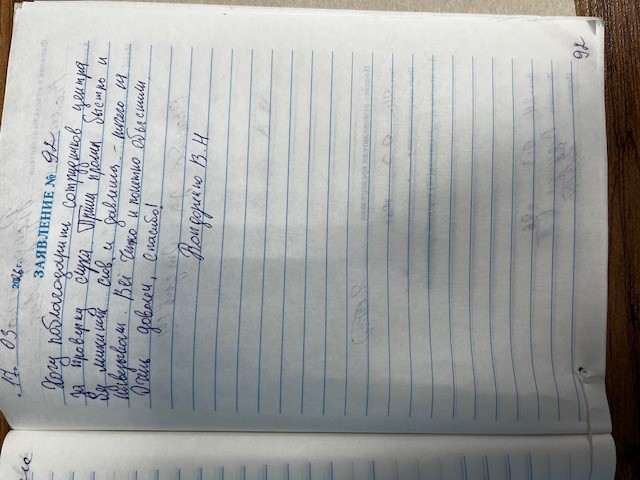 17. 03. 2026 г.
ЗАЯВЛЕНИЕ № 92
Хочу поблагодарить сотрудников центра
за проверку слуха. Прием прошел быстро и
без лишних слов и давления - ничего не
навязывали. Всё чётко и понятно объяснили.
Очень доволен, спасибо!
Кондренко В.Н
92